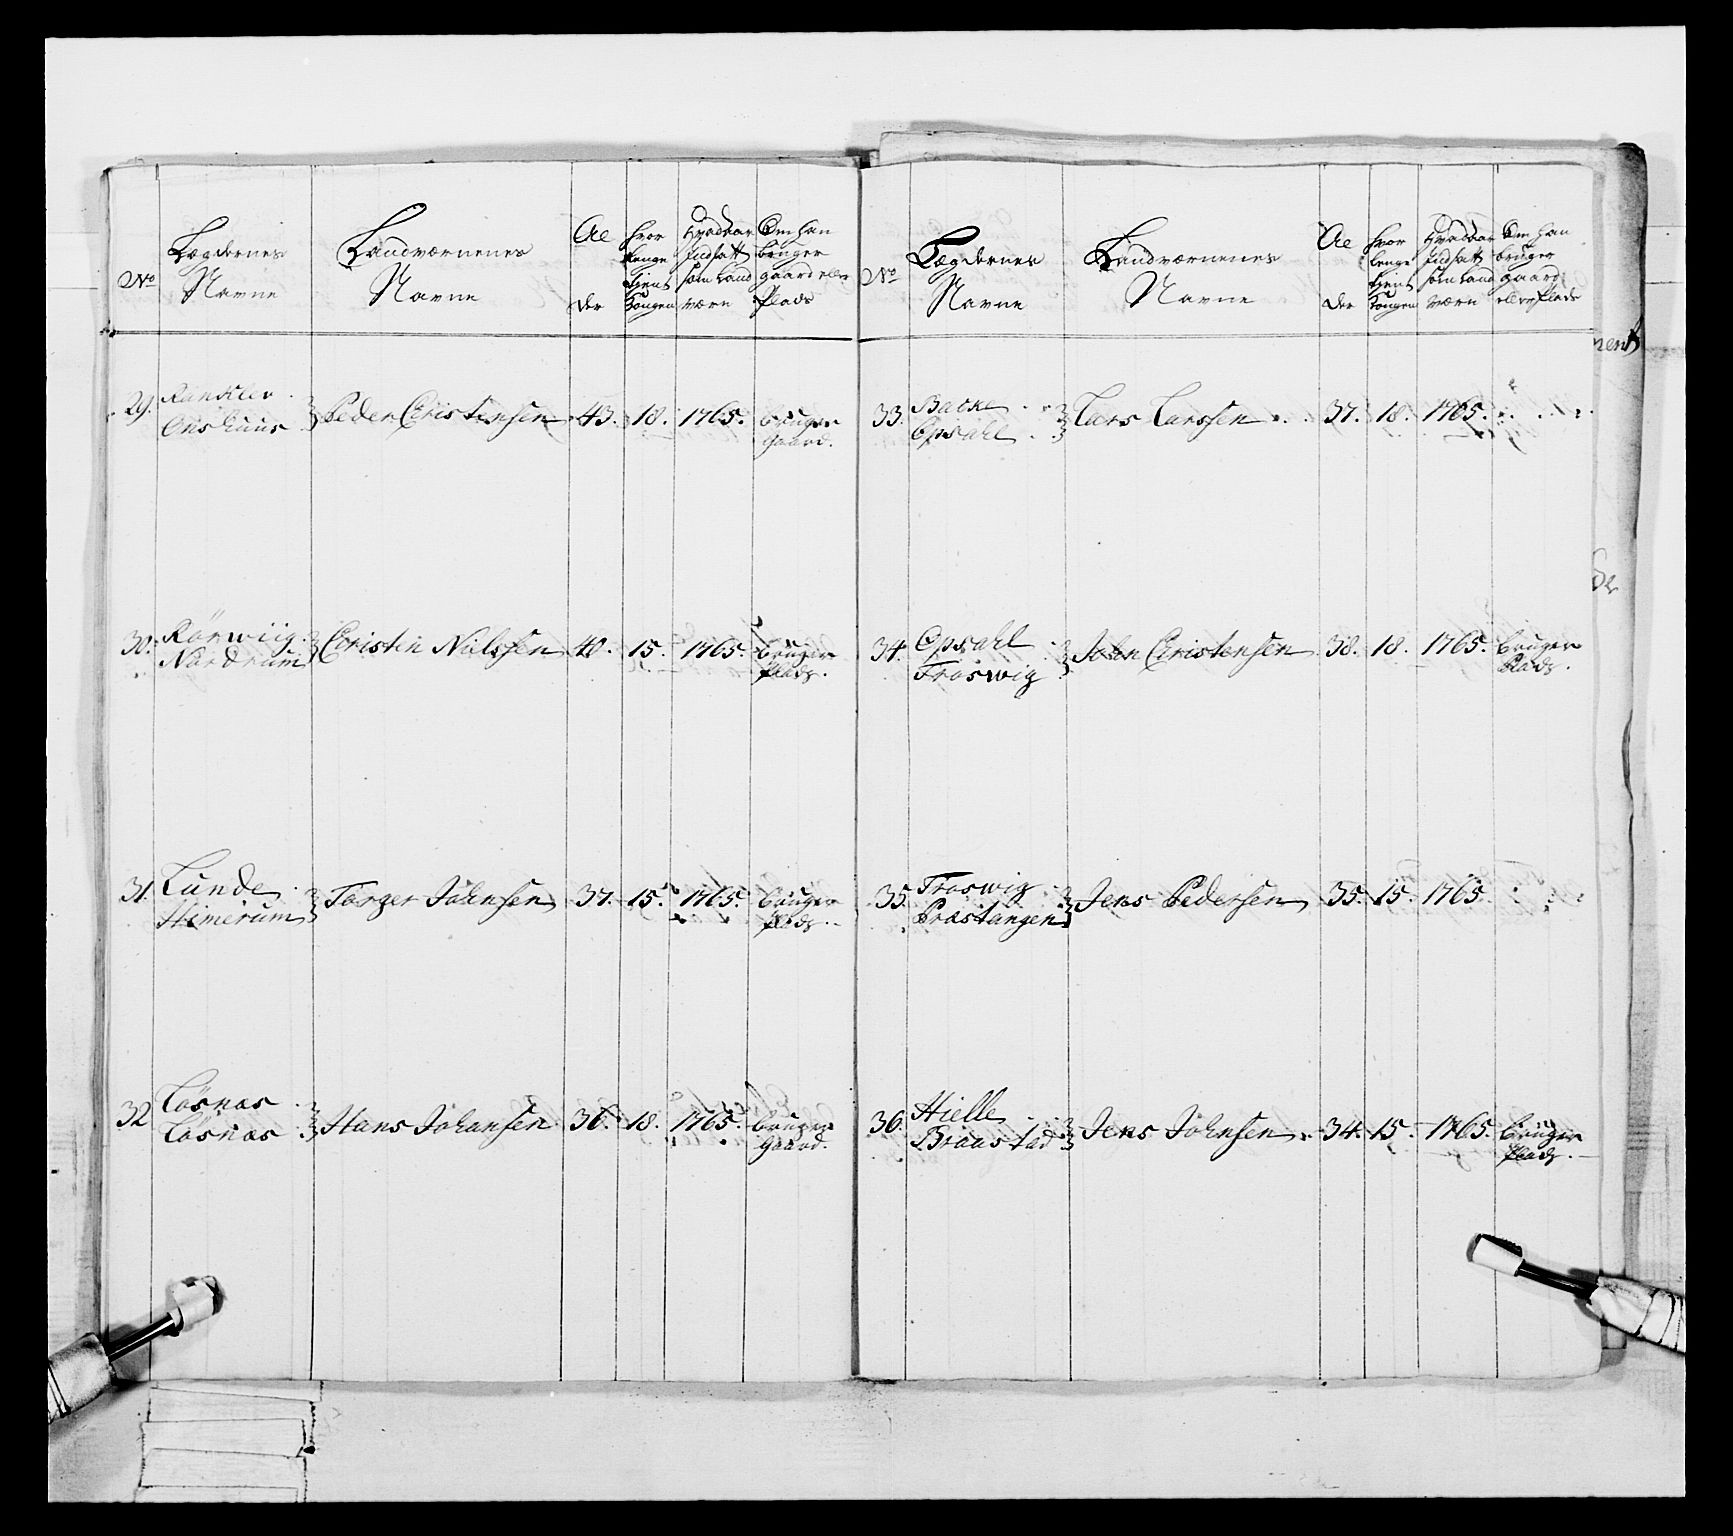 No
Lægdernes
Navne
Landværnenes
Navne
Al
der
hvor
lenge
tient
Kongen
Hvad aar
Indsatt
som Land
værn
Om han
bruger
gaard eller
Plads
29.
Ranklev
Onshuus
Peder Christensen
43.
18.
1765.
bruger
gaard.
30.
Rörwiig
Nordrum
Christen Nielssen
40.
15.
1765.
bruger
Plads.
31.
Lunde
Himerum
Torger Johnsen
37.
15.
1765.
bruger
Plads.
32
Losnæs
Losnæs
Hans Johansen
36.
18.
1765.
bruger
gaard.
No
Lægdernes
Navne
Landværnenes
Navne
Al
der
hvor
lenge
tient
Kongen
Hvad aar
Indsatt
som Land
værn
Om han
bruger
gaard
eller Plads
33.
Backe
Opsahl
Lars Larssen
37.
18.
1765.
34.
Opsahl
Froswig
John Christensen
38.
18.
1765.
bruger
Plads.
35.
Froswig
Præstangen
Jens Pedersen
35.
15.
1765
36.
Hielle
Braastad
Jens Johnsen
34.
15.
1765.
bruger
Plads.